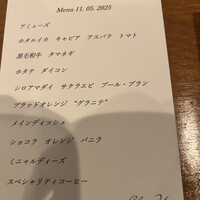 Menu 11. 05. 2025
アミューズ
ホタルイカ キャビア アスパラ トマト
黒毛和牛 タマネギ
ホタテ ダイコン
シロアマダイ サクラエビ ブール・ブラン
ブラッドオレンジ “グラニテ”
メインディッシュ
ショコラ オレンジ バニラ
ミニャルディーズ
スペシャリティコーヒー